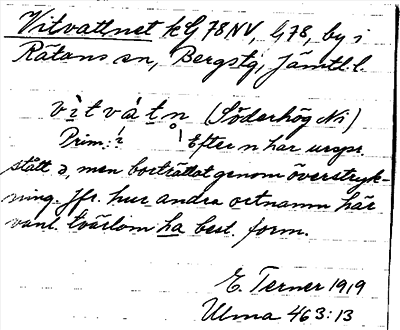 Vitvattnet k G 78 NV, G 78, by i
Rätans sn, Bergs tg, Jämtl. l.
vìtvàtn (Söderhög Ni)
Prim: Efter n har urspr.
stått ə, men borträttat genom överstryk-
ning. Jfr. hur andra ortnamn här
vanl. tvärtom ha best. form.
E. Terner 1919
Ulma 463:13